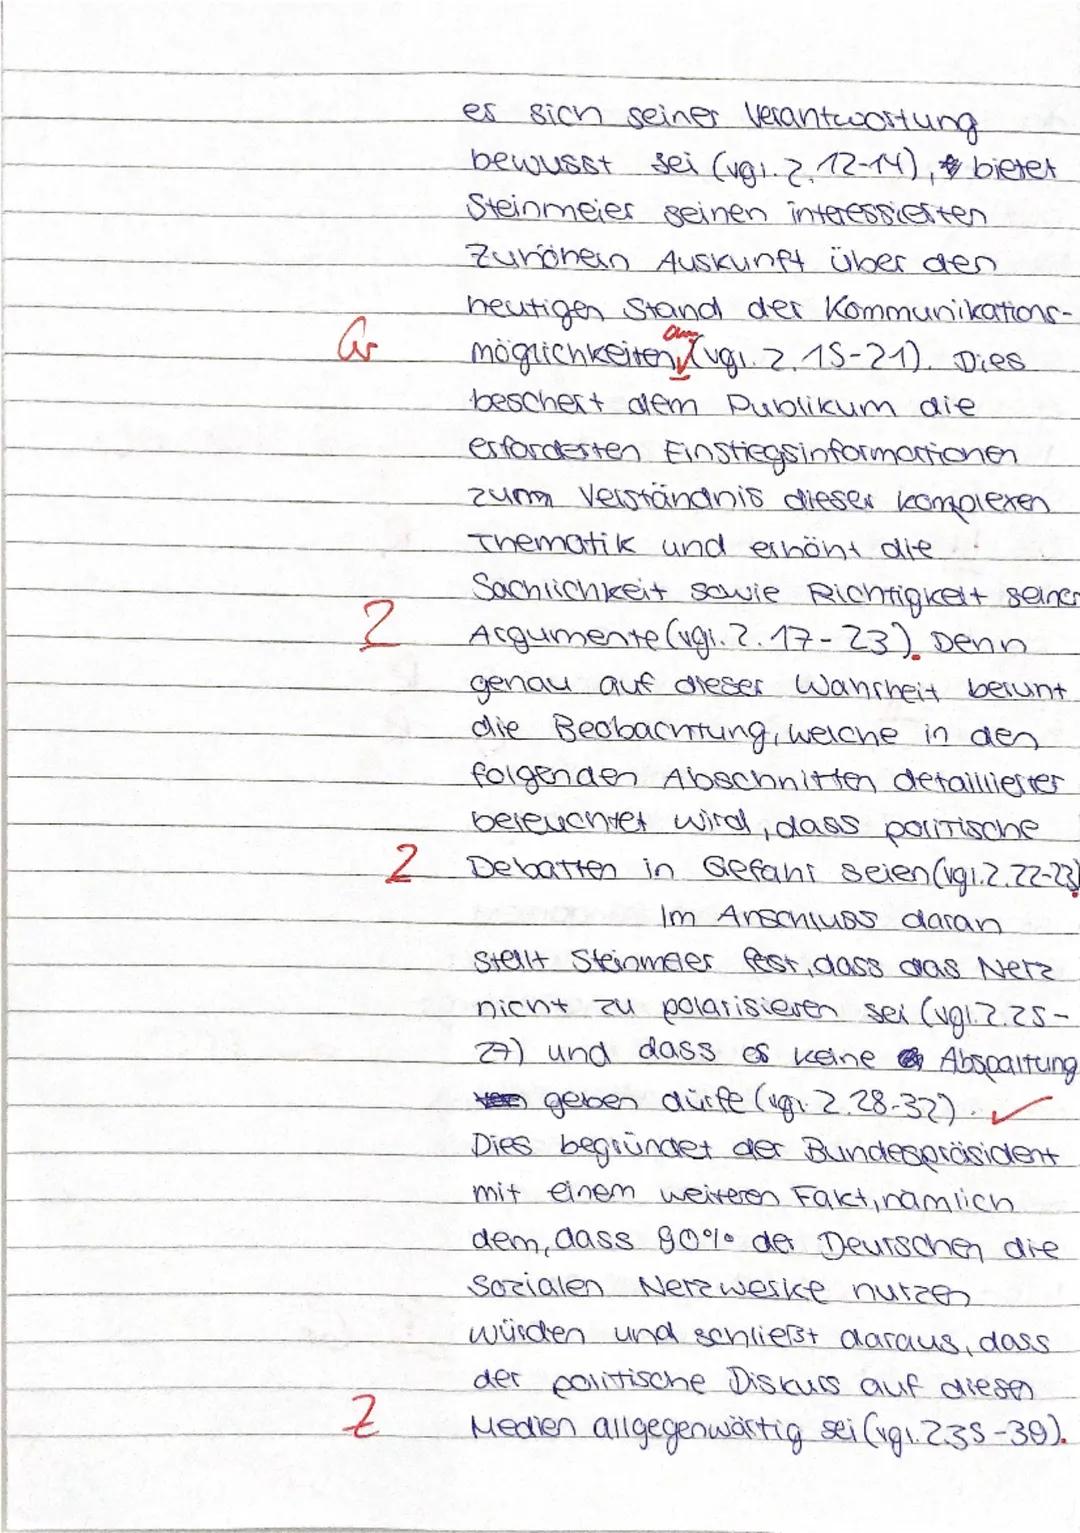 es sich seiner Verantwortung
bewusst sei (vgl. Z. 12-14), bietet
Steinmeier seinen interessierten
Zuhörern Auskunft über den
heutigen Stand der Kommunikations-
Gr möglichkeiten (vgl. Z. 15-21). Dies
beschert dem Publikum die
erforderten Einstiegsinformationen
zum Verständnis dieser komplexen
Thematik und erhöht die
Sachlichkeit sowie Richtigkeit seiner
Z Argumente (vgl. Z. 17-23). Denn
genau auf dieser Wahrheit beruht
die Beobachtung, welche in den
folgenden Abschnitten detaillierter
beleuchtet wird, dass politische
Z Debatten in Gefahr seien (vgl. Z. 22-23)
Im Anschluss daran
stellt Steinmeier fest, dass das Netz
nicht zu polarisieren sei (vgl. Z. 25-
27) und dass es keine Abspaltung
geben dürfe (vgl. Z. 28-32).
Dies begründet der Bundespräsident
mit einem weiteren Fakt, nämlich
dem, dass 90% der Deutschen die
sozialen Netzwerke nutzen
würden und schließt daraus, dass
der politische Diskurs auf diesen
Z Medien allgegenwärtig sei (vgl. Z. 35-39).